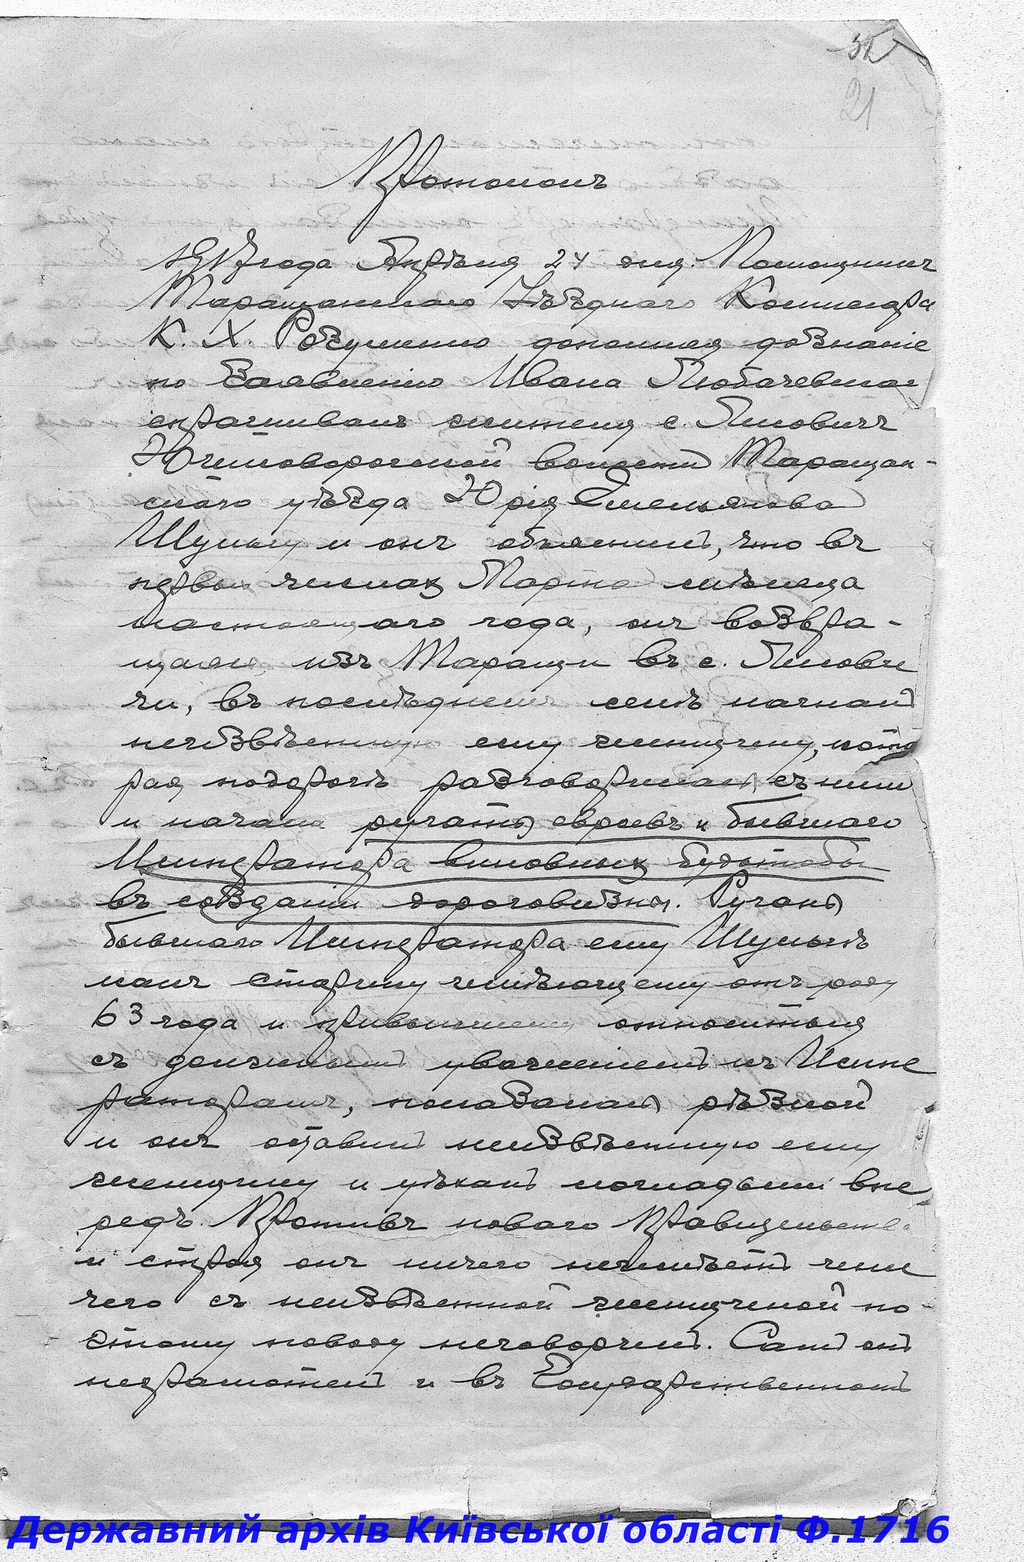 32
21
Протоколъ
1917 года Апрѣля 24 дня. Помощникъ
Таращанскаго Уѣзднаго Комиссара
К. Х. дополняя дознаніе
по Заявленію Ивана Любачевскаго
спрашивалъ жителя с. Лисовичъ
волости Таращан-
скаго уѣзда Юрія Емельянова
Шульгу и онъ объяснилъ, что въ
первыхъ числахъ Марта мѣсяца
настоящаго года, онъ возвра-
щаясь изъ Таращи въ с. Лисови
чи, въ послѣднемъ селѣ нагналъ
неизвѣстную ему женщину, кото
рая подорогѣ разговорилась съ нимъ
и начала ругать евреевъ и бывшаго
Императора виновныхъ будтобы
въ созданіи дороговизны. Ругань
бывшаго Императора ему Шульгѣ
какъ старику имѣющему отъ роду
63 года и привыкшему относиться
съ должнымъ уваженіемъ къ Импе
раторамъ, показалась рѣзкой
и онъ оставилъ неизвѣстную ему
женщину и уѣхалъ лошадьми впе
редъ. Противъ новаго Правительства
и строя онъ ничего неимѣетъ и ни
чего съ неизвѣстной женщиной по
этому поводу неговорилъ. Самъ онъ
неграмотенъ и въ Государственномъ
Державний архів Київської області Ф.1716